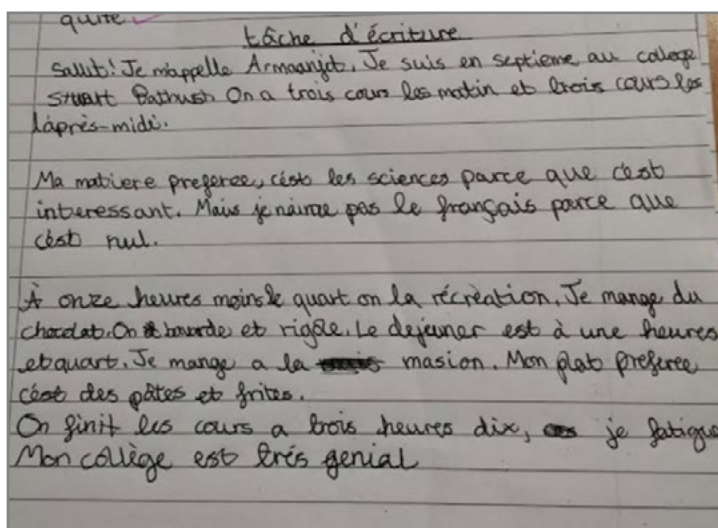 quite
tâche d'écriture
Salut! Je m'appelle Armaanjot. Je suis en septieme au college
Stuart Bathust On a trois cours les matin et trois cours les
l'àprès-midi.
Ma matiere preferee, c'est les sciences parce que c'est
interessant. Mais je n'aime pas le français parce que
c'est nul.
À onze heures moins le quart on la récrèation. Je mange du
chocolat. On bavarde et rigole. Le dejeuner est à une heures
et quart. Je mange a la masion. Mon plat preferee
c'est des pâtes et frites.
On finit les cours a trois heures dix, je fatigue
Mon collège est très genial